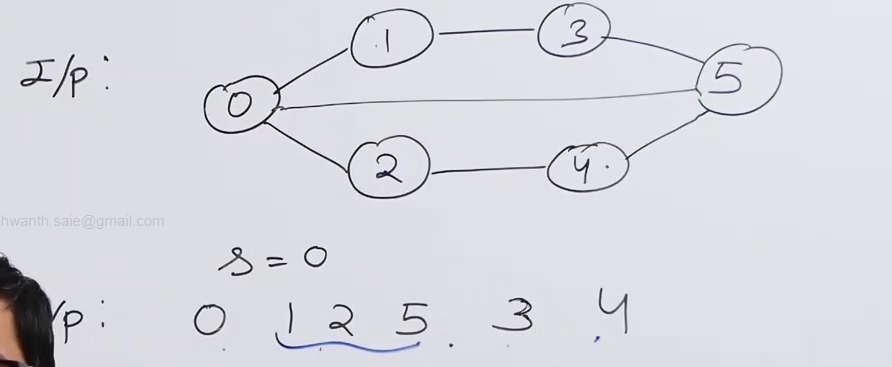 1 3
I/p: 0 5
2 4
hwanth.saie@gmail.com
s = 0
/p: 0 1 2 5 3 4